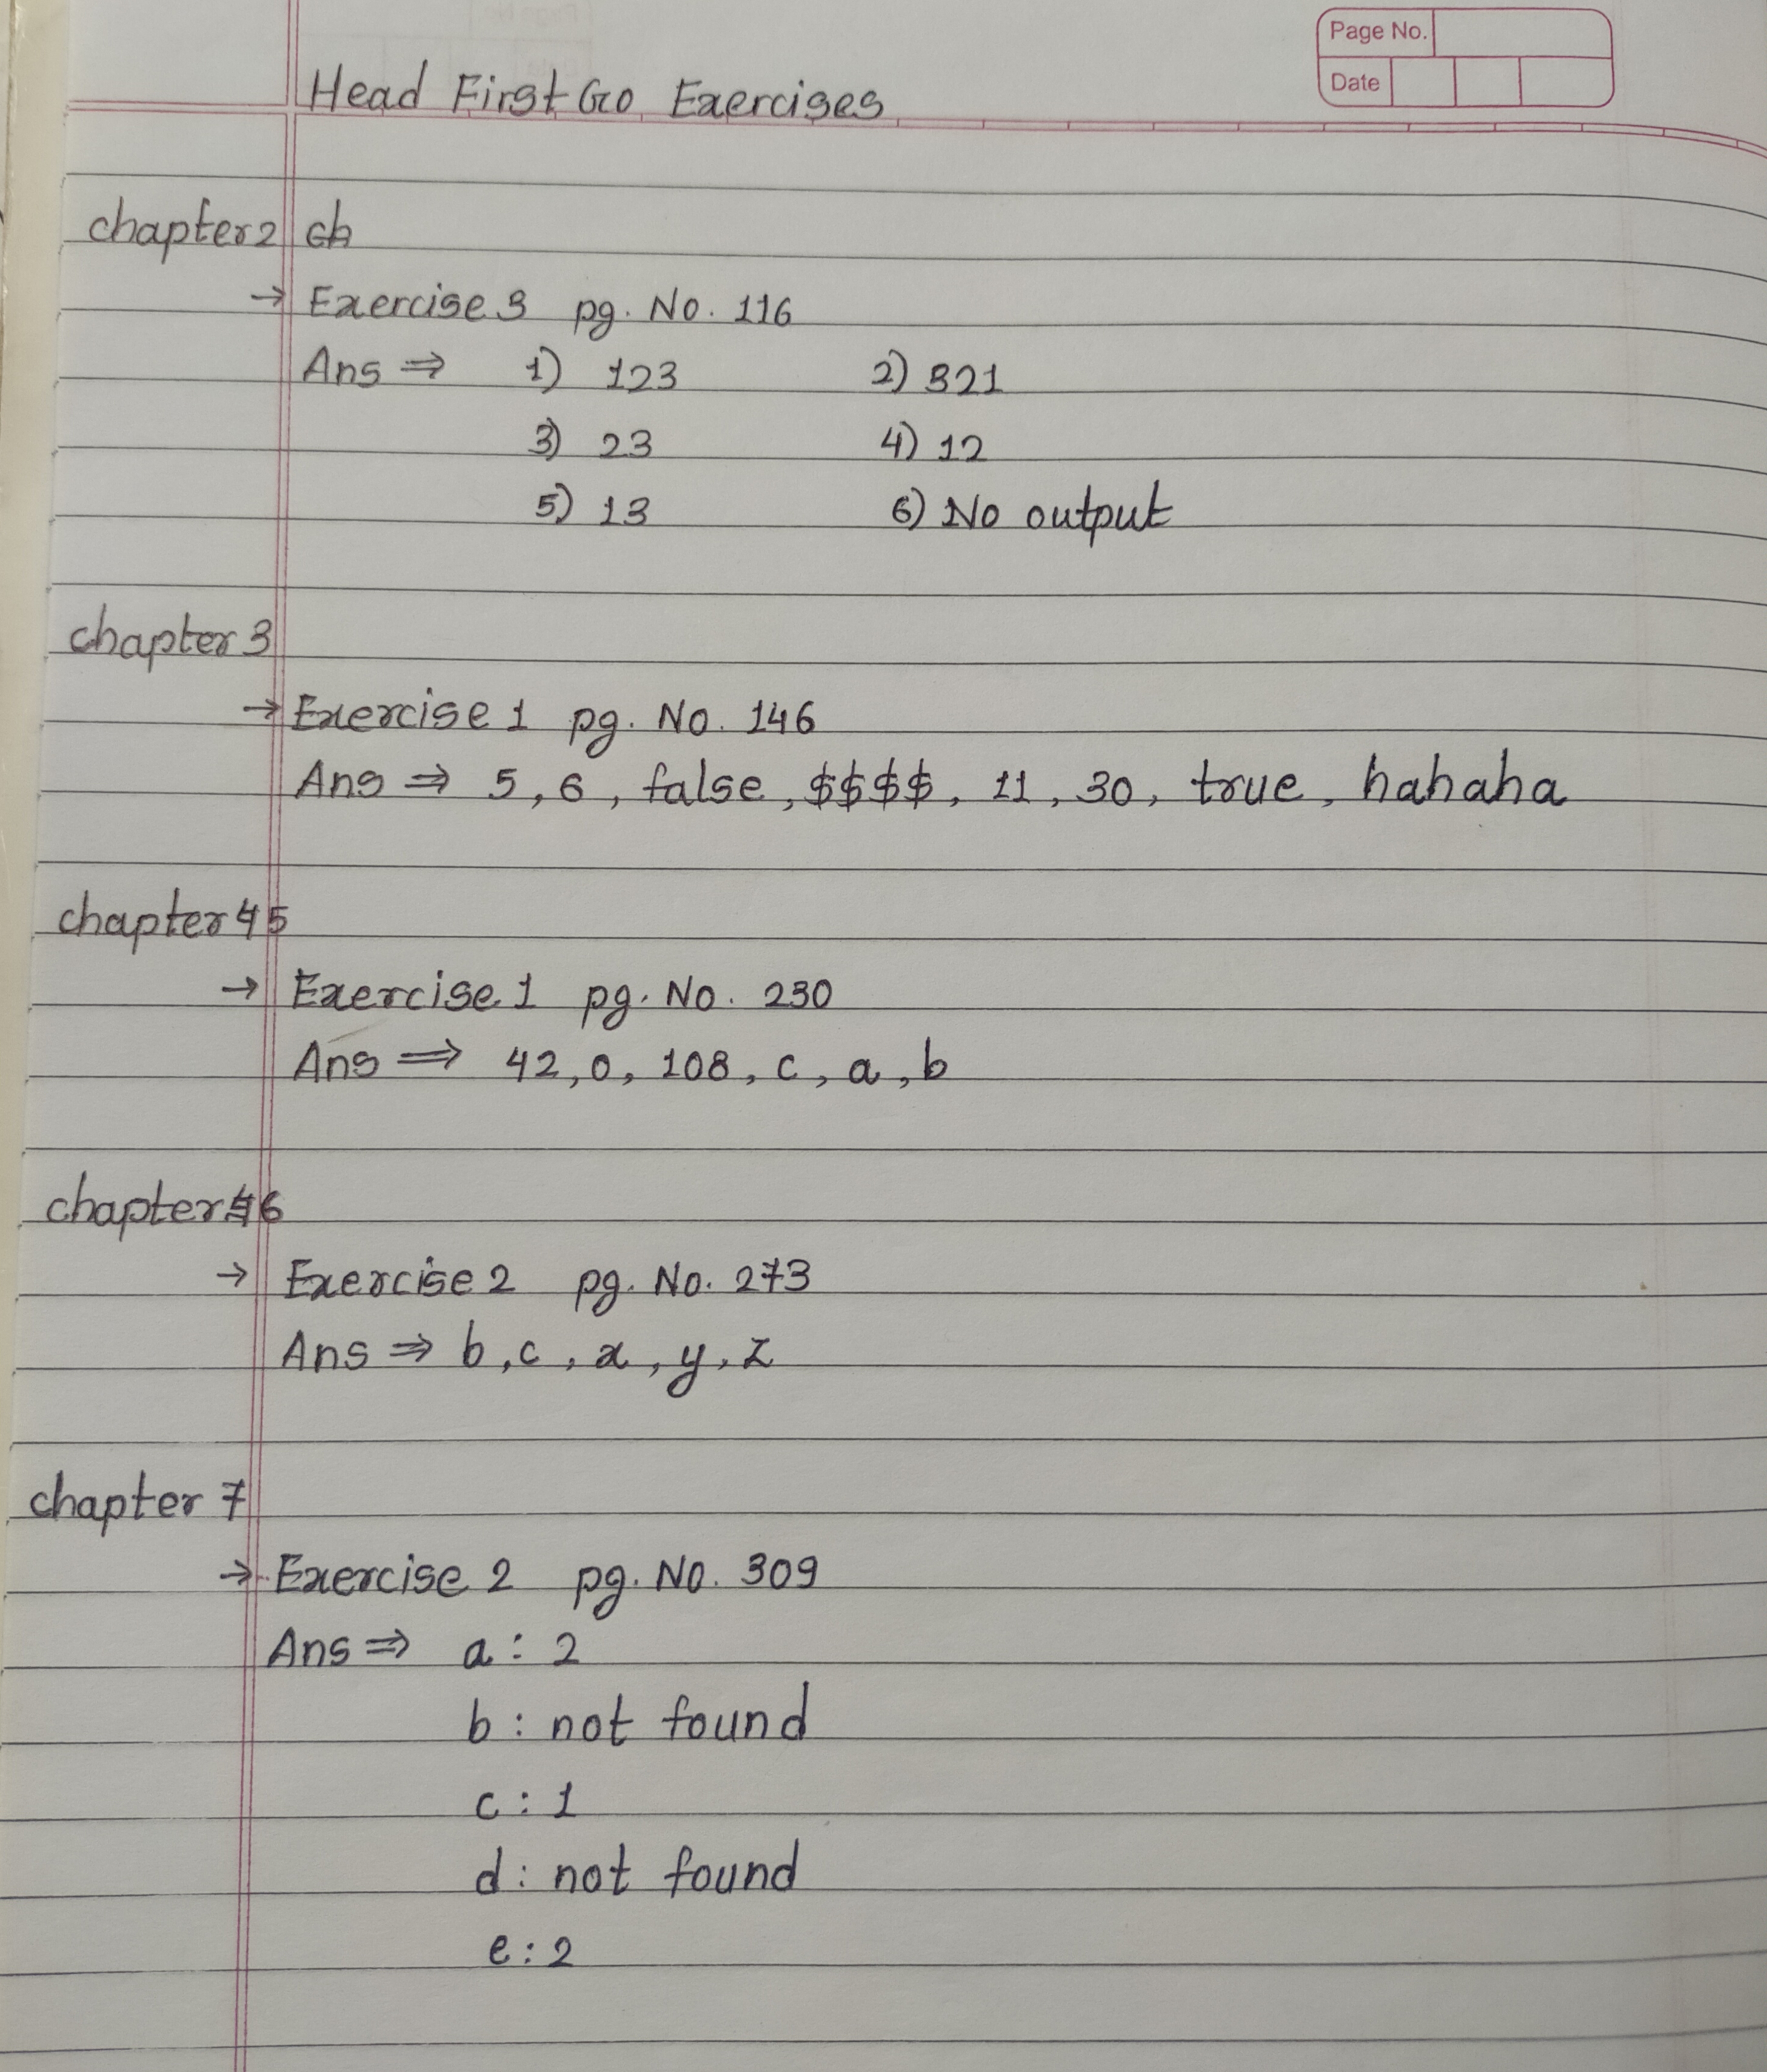 Page No.
Date
Head First Go Exercises
chapter 2 ch
→ Exercise 3 pg. No. 116
Ans ⇒ 1) 123 2) 321
3) 23 4) 12
5) 13 6) No output
chapter 3
→ Exercise 1 pg. No. 146
Ans ⇒ 5, 6, false, $$$$, 11, 30, true, hahaha
chapter 4 5
→ Exercise 1 pg. No. 230
Ans ⇒ 42, 0, 108, c, a, b
chapter 6
→ Exercise 2 pg. No. 273
Ans ⇒ b, c, x, y, z
chapter 7
→ Exercise 2 pg. No. 309
Ans ⇒ a : 2
b : not found
c : 1
d : not found
e : 2